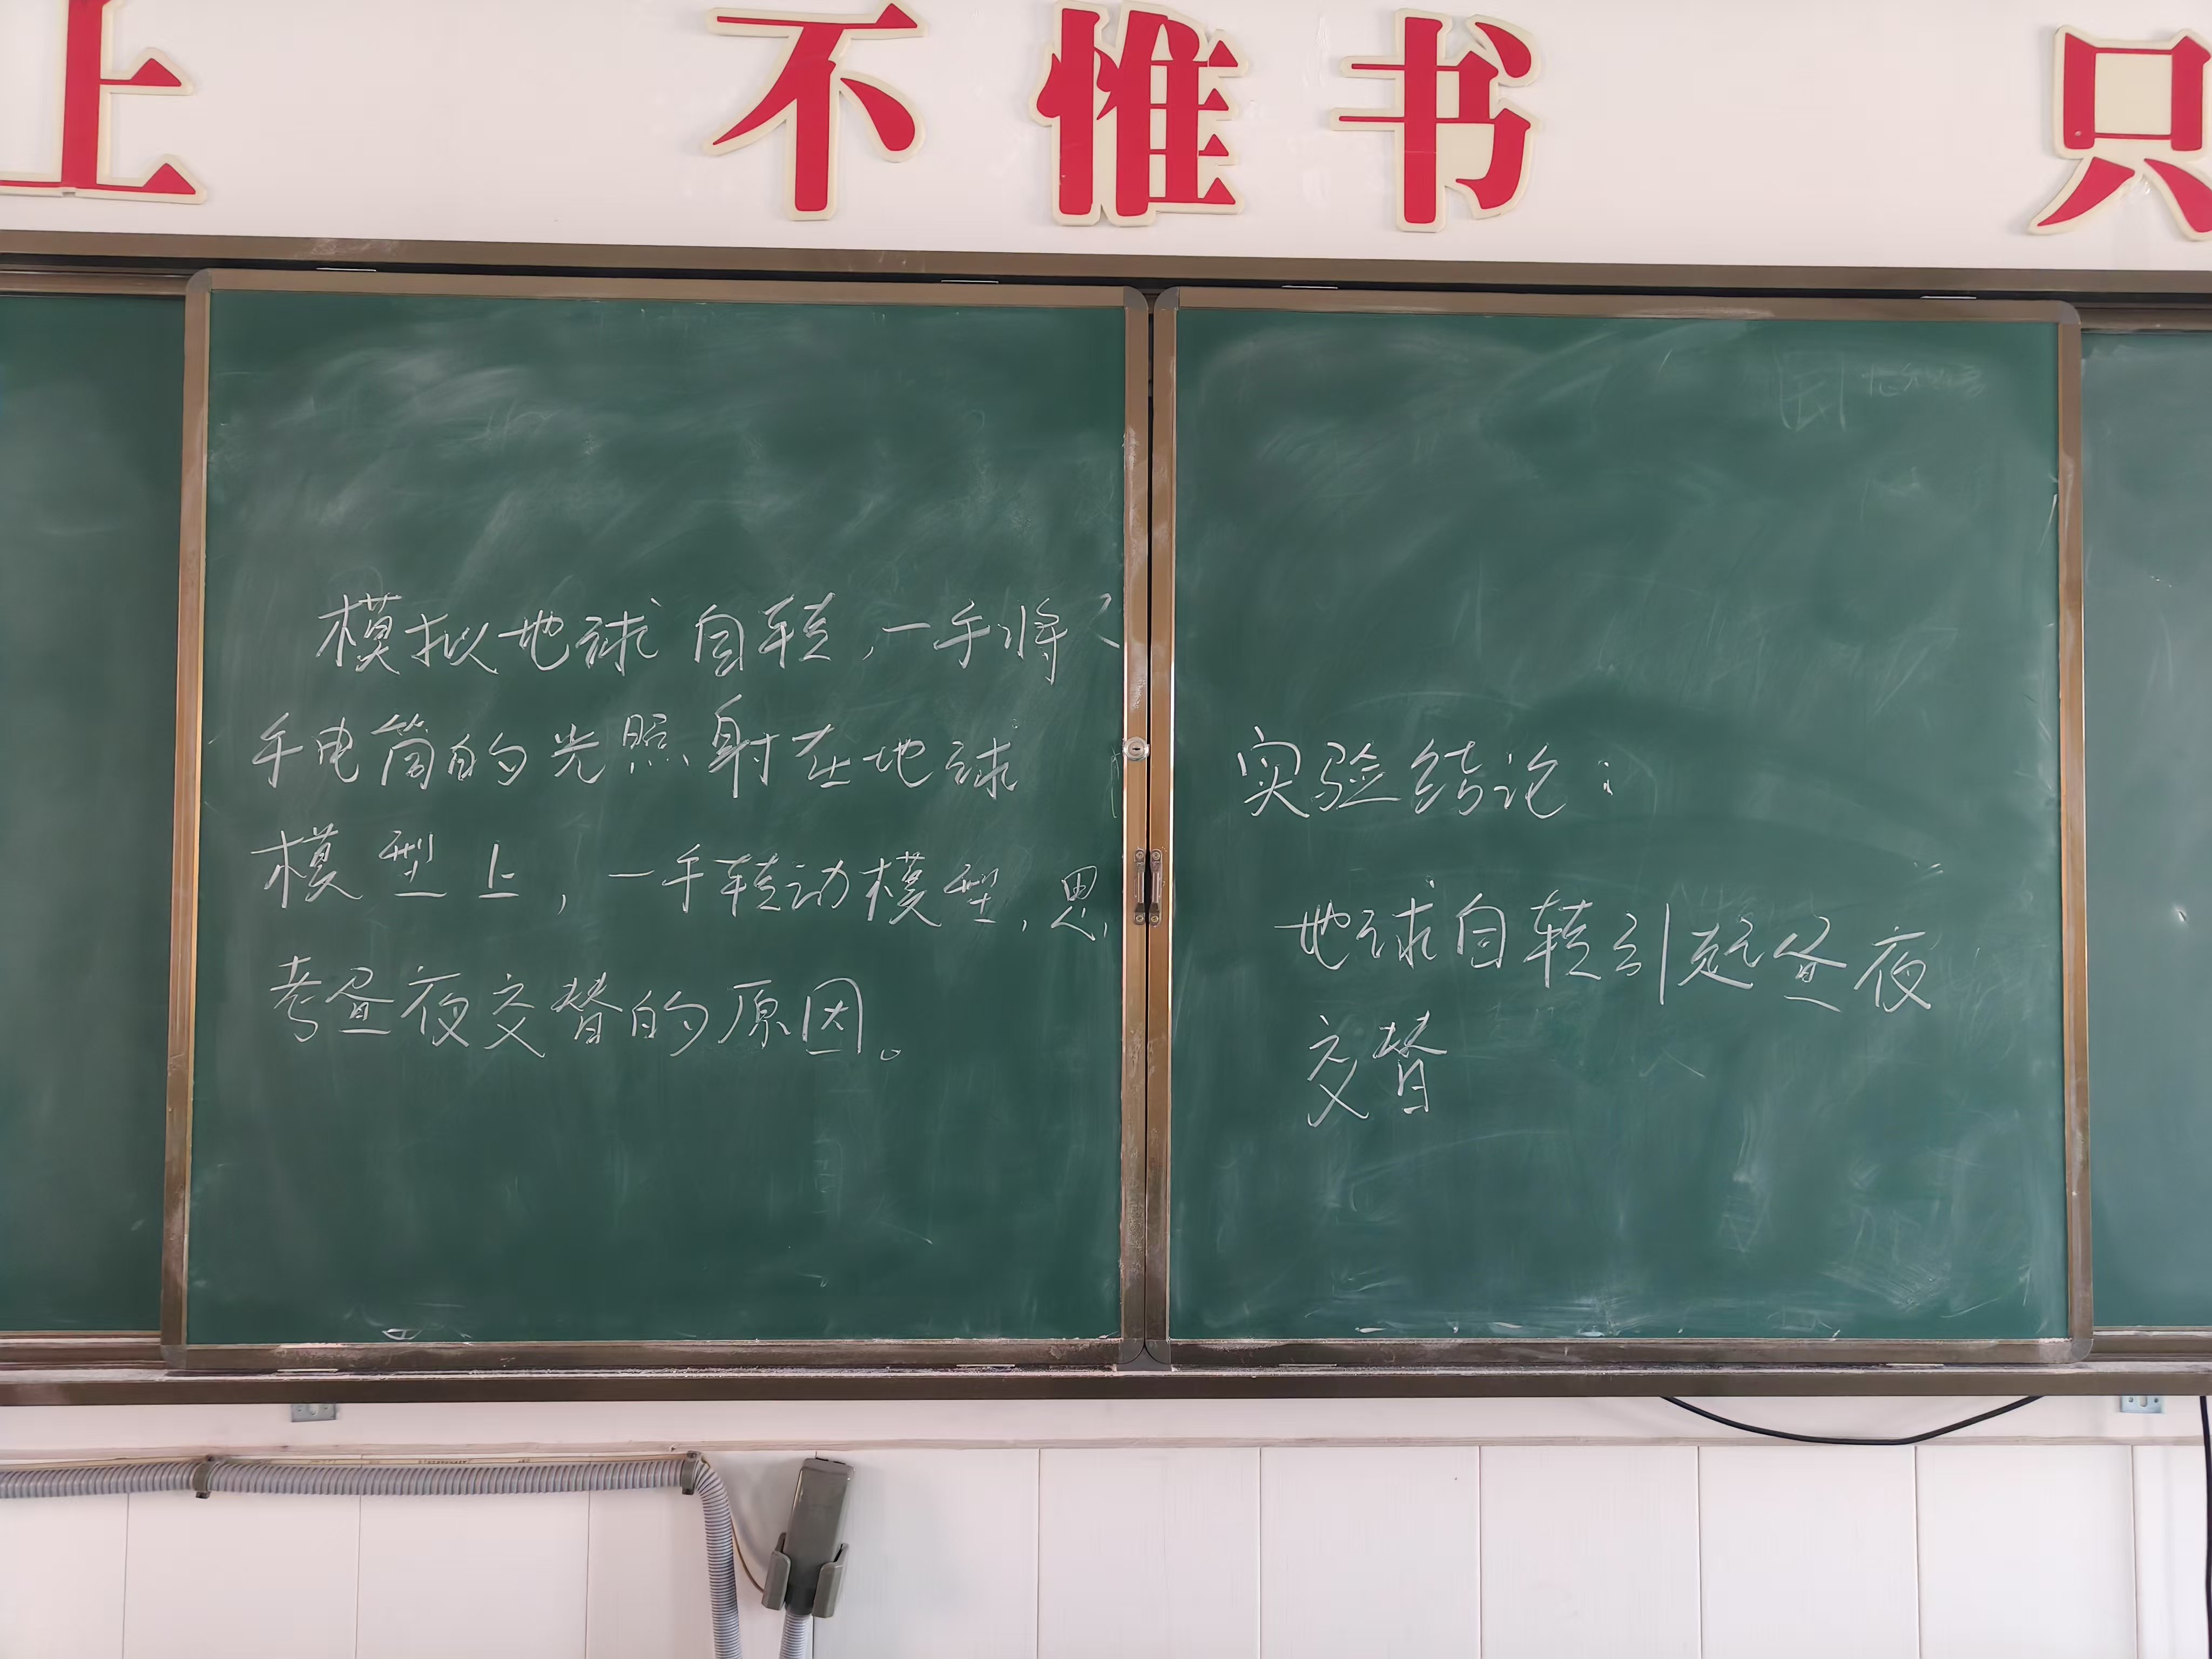 上 不惟书 只
模拟地球自转，一手将
手电筒的光照射在地球
模型上，一手转动模型，思
考昼夜交替的原因。
实验结论：
地球自转引起昼夜
交替